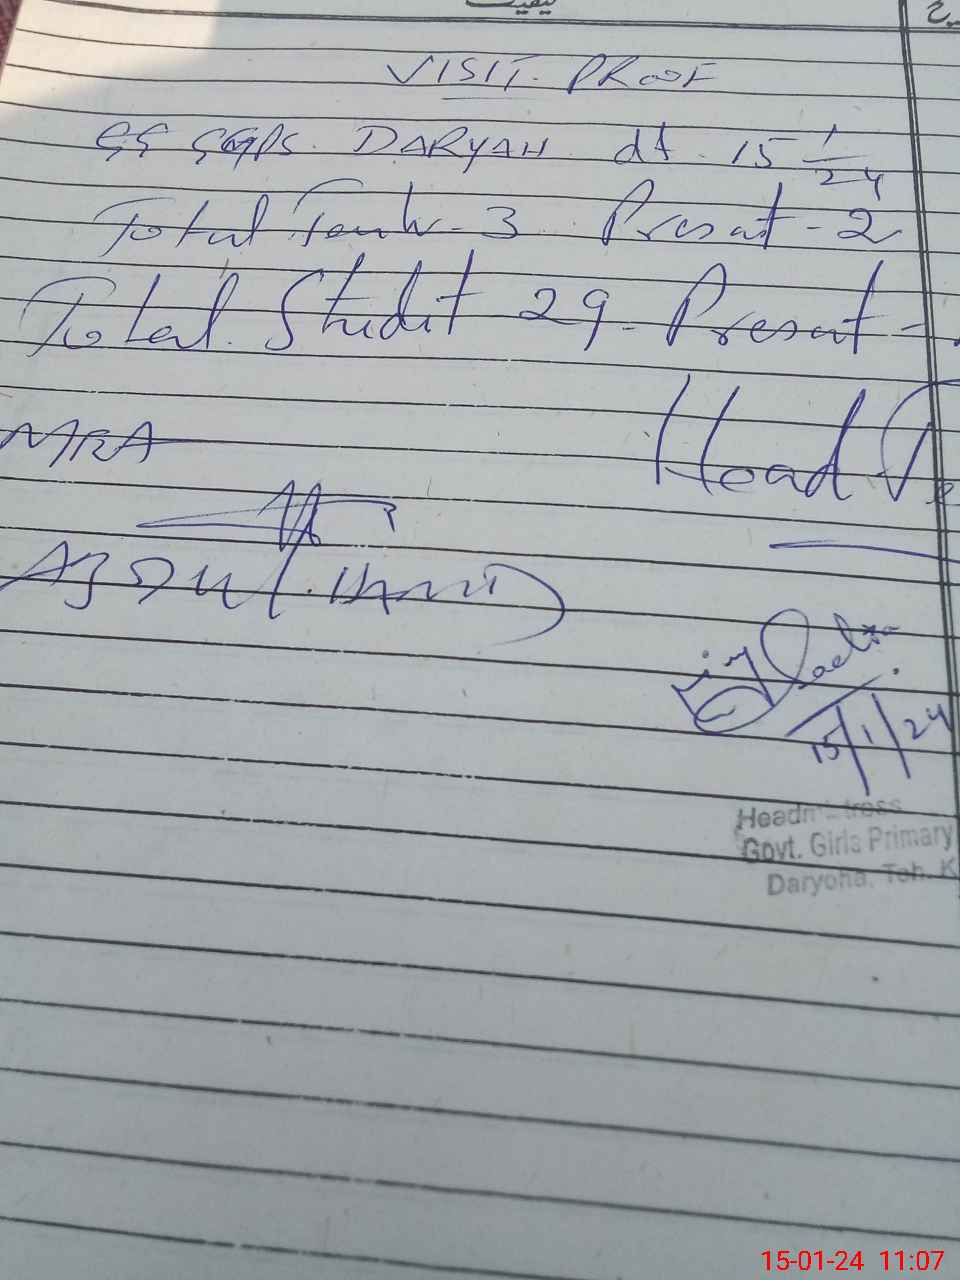 کیفیت
VISIT PROOF
GGPS. DARYAH dt. 15 1/24
Total 3 Present - 2
Total Student 29 - Present -
MEA
Head
ABDUL HAMID
15/1/24
Headmistress
Govt. Girls Primary
Daryoha, Teh. K
15-01-24 11:07